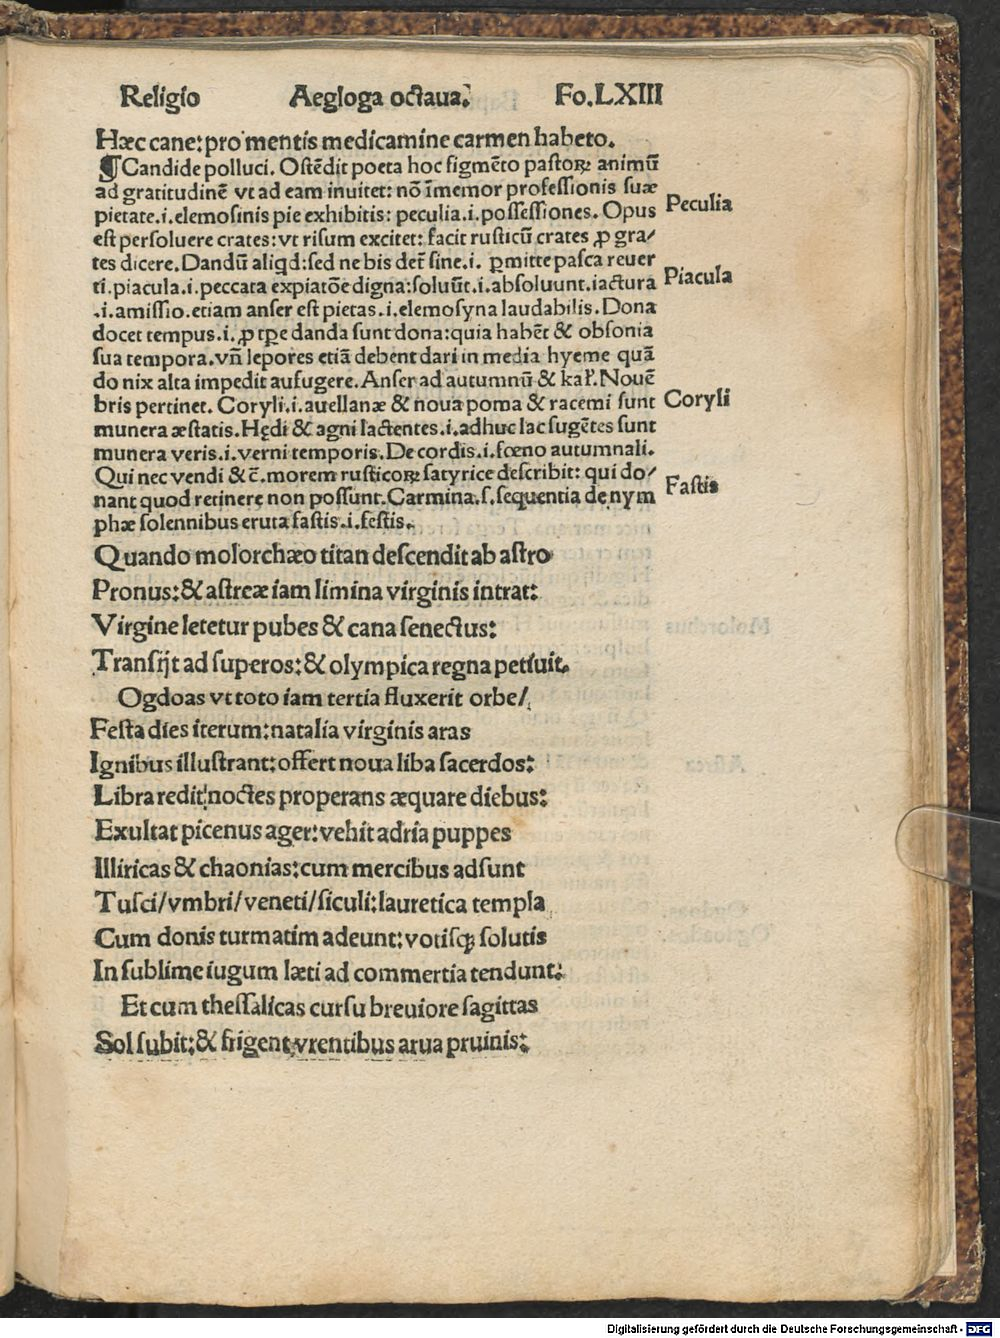 Religio Aegloga octaua. Fo.LXIII
Hæc cane: pro mentis medicamine carmen habeto.
¶Candide polluci. Ostēdit poeta hoc figmēto pastoꝝ animū
ad gratitudinē vt ad eam inuitet: nō īmemor professionis suæ
pietate.i.elemosinis pie exhibitis: peculia.i.possessiones. Opus
Peculia
est persoluere crates: vt risum excitet: facit rusticū crates ꝓ gra/
tes dicere. Dandū aliqd: sed ne bis det̄ sine.i. ꝑmitte pasca reuer
ti. piacula.i.peccata expiatōe digna: soluūt.i.absoluunt. iactura
Piacula
.i.amissio. etiam anser est pietas.i.elemosyna laudabilis. Dona
docet tempus.i.ꝓ tꝑe danda sunt dona: quia habēt & obsonia
sua tempora. vn̄ lepores etiā debent dari in media hyeme quā
do nix alta impedit aufugere. Anser ad autumnū & kal̄. Nouē
bris pertinet. Coryli.i.auellanæ & noua poma & racemi sunt
Coryli
munera æstatis. Hędi & agni lactentes.i.adhuc lac sugētes sunt
munera veris.i.verni temporis. De cordis.i.fœno autumnali.
Qui nec vendi & c̄. morem rusticoꝝ satyrice describit: qui do/
nant quod retinere non possunt. Carmina.s.sequentia de nym
Fastis
phæ solennibus eruta fastis.i.festis.
Quando molorchæo titan descendit ab astro
Pronus: & astreæ iam limina virginis intrat:
Virgine letetur pubes & cana senectus:
Transijt ad superos: & olympica regna petiuit.
Ogdoas vt toto iam tertia fluxerit orbe/
Festa dies iterum: natalia virginis aras
Ignibus illustrant: offert noua liba sacerdos:
Libra redit: noctes properans æquare diebus:
Exultat picenus ager: vehit adria puppes
Illiricas & chaonias: cum mercibus adsunt
Tusci/vmbri/veneti/siculi: lauretica templa
Cum donis turmatim adeunt: votisqꝫ solutis
In sublime iugum læti ad commertia tendunt:
Et cum thessalicas cursu breuiore sagittas
Sol subit: & frigent vrentibus arua pruinis:
Digitalisierung gefördert durch die Deutsche Forschungsgemeinschaft - DFG